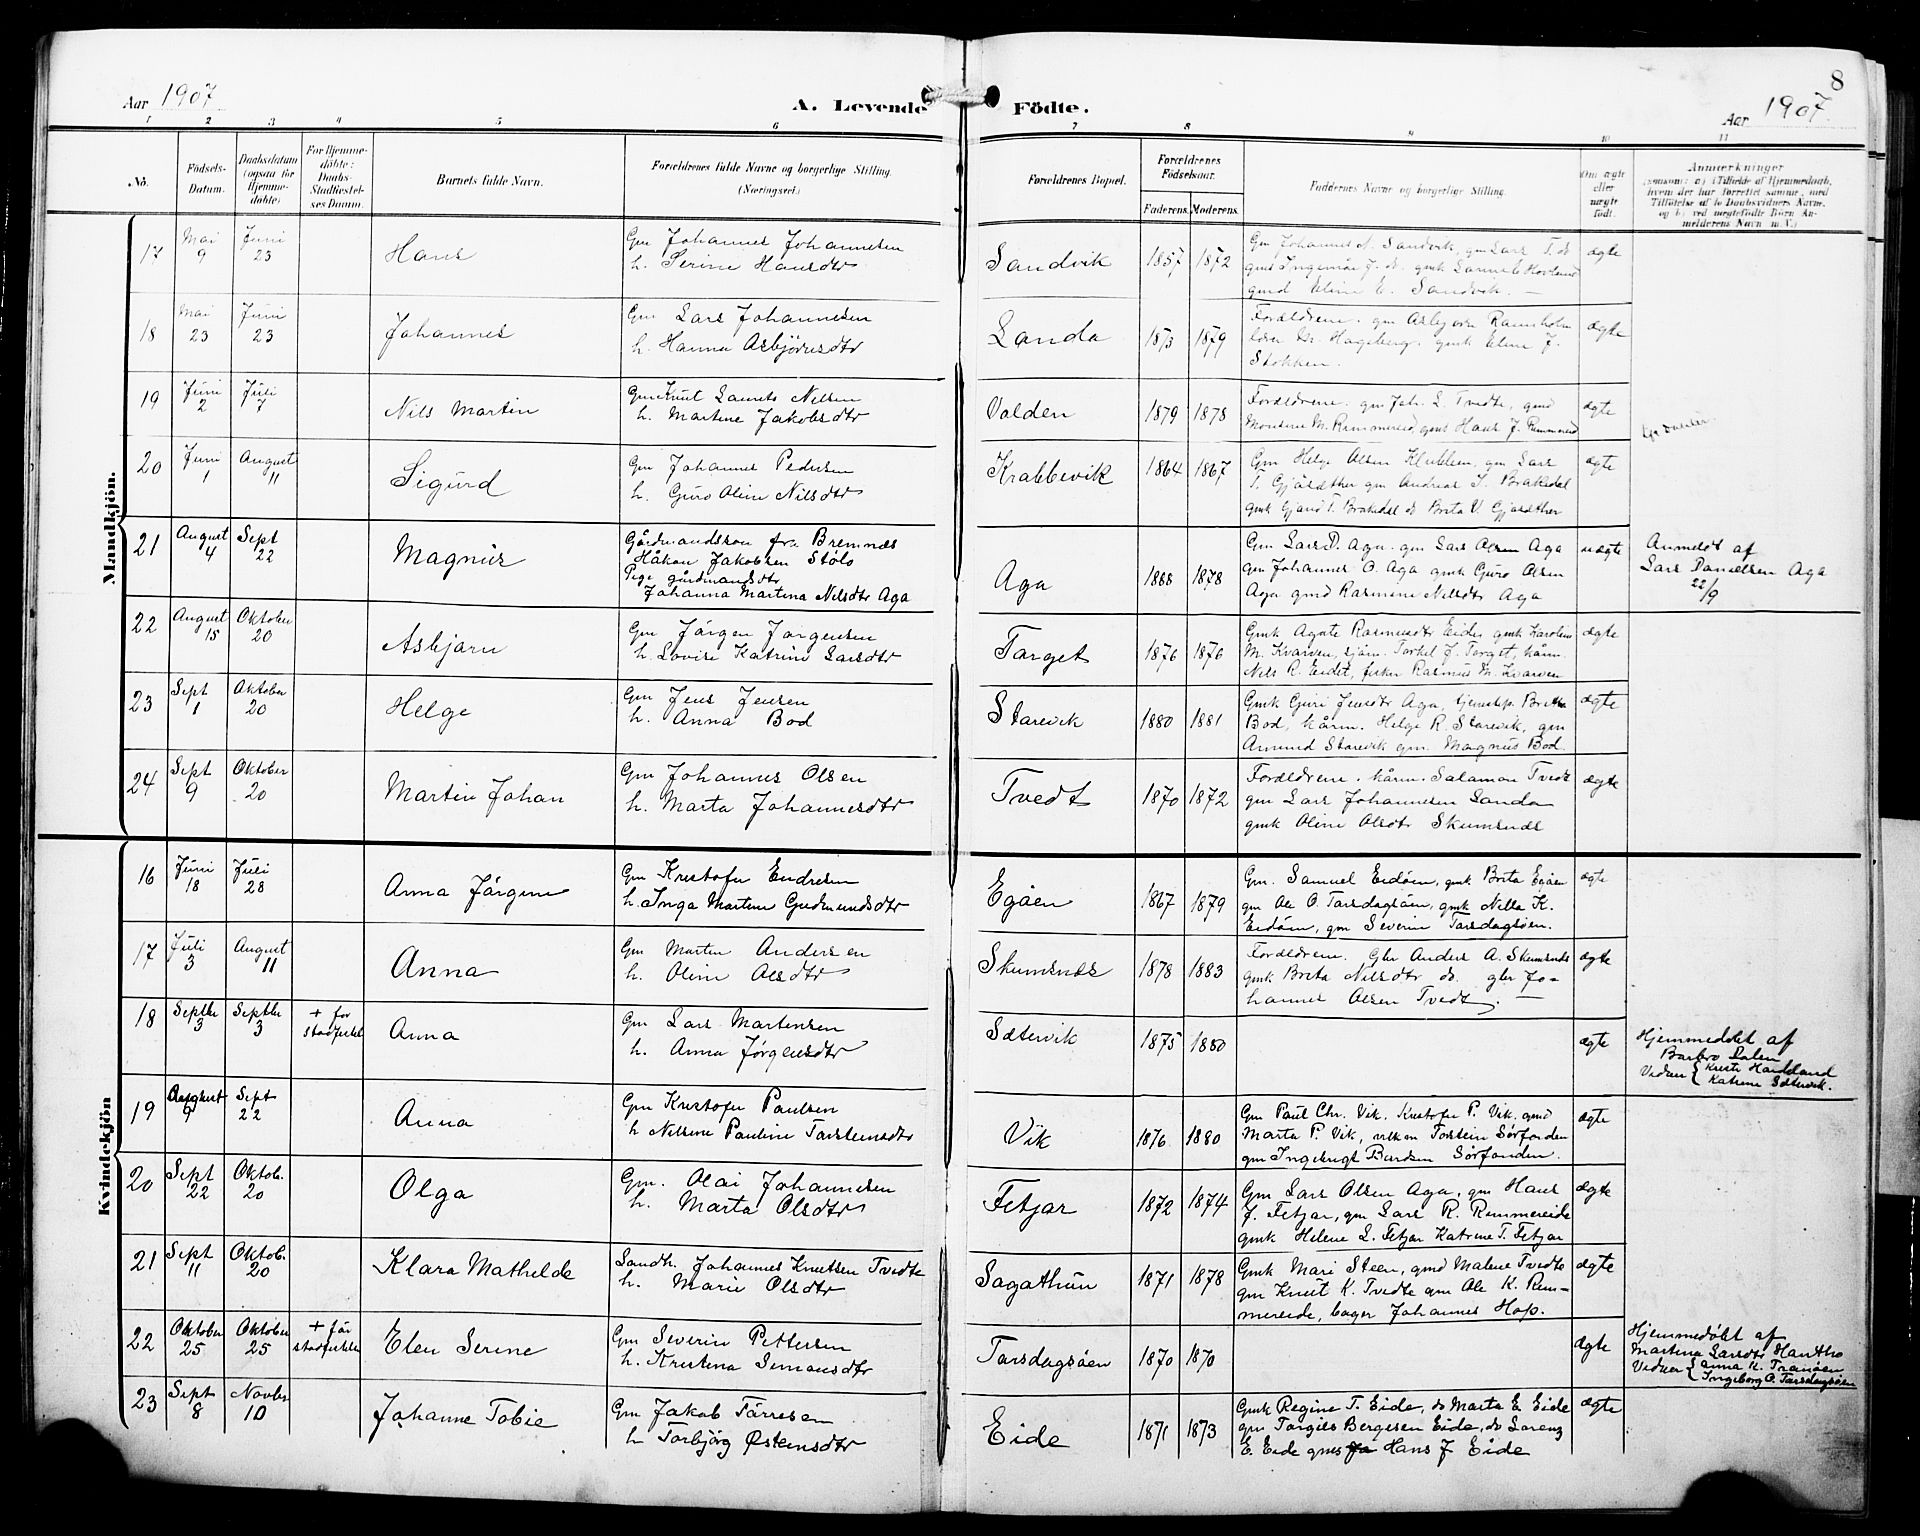 Aar 1907
A. Levende Födte.
Aar 1907.
8
1 2 3 4 5 6 7 8 9 10 11
No.
Födsels-Datum.
Daabsdatum (ogsaa for Hjemme-döbte)
For Hjemme-döbte: Daabs-Stadfæstel-ses Datum.
Barnets fulde Navn.
Forældrenes fulde Navne og borgerlige Stilling. (Næringsvei.)
Forældrenes Bopæl.
Forældrenes Födselsaar.
Faderens. Moderens.
Faddernes Navne og borgerlige Stilling.
Om ægte eller uægte födt.
Anmærkninger
Mandkjön.
17 Mai 9 Juni 23 Hans
Gm Johannes Johannesen
h. Serine Hansdtr
Sandvik 1857 1872
Gm Johannes N. Sandvik, gm Lars T. do
gmd Ingemar J. do. gmk Hovland
gmd Eline E. Sandvik.
ægte
18 Mai 23 Juni 23 Johannes
Gm Lars Johannesen
h. Hanna Asbjörnsdtr
Landa 1873 1879
Forældrene. gm Asbjörn Ramsholm
lærer M. Hageberg. gmk Eline J.
Stokken.
ægte
19 Juni 2 Juli 7 Nils Martin
Gm Knut Laurits Nilsen
h. Martine Jakobsdtr
Valden 1879 1878
Forældrene. gm Joh. L. Tvedte, gmd
Montine M. Rimmereid, gms Hans J. Rimmereid
ægte
20 Juni 1 August 11 Sigurd
Gm Johannes Pedersen
h. Guro Oline Nilsdtr
Krabbevik 1864 1867
Gm Helge Olsen Klubben, gm Lars
T. Gjösæther gm Andreas T. Brakedal
gmk Gjarid T. Brakedal do Brita V. Gjösæther
ægte
21 August 4 Sept 22 Magnus
Gårdmandsson fra Bremnes
Håkon Jakobsen Stölo
Pige gårdmandsdtr
Johanna Martena Nilsdtr Aga
Aga 1888 1878
Gm Lars D. Aga. gm Lars Olsen Aga
gm Johannes O. Aga gmk Guro Olsen
Aga gmd Rasmine Nilsdtr Aga
uægte
Anmeldt af
Lars Danielsen Aga
22/9
22 August 15 Oktober 20 Asbjørn
Gm Jörgen Jörgensen
h. Lovise Katrine Larsdtr
Torget 1876 1876
Gmk Agate Rasmusdtr Eide, gmk Karoline
M. Kvarven, sjöm. Torkel J. Torget, kårm.
Nils R. Eidet, fisker Rasmus M. Kvarven
ægte
23 Sept 1 Oktober 20 Helge
Gm Jens Jensen
h. Anna Bod
Starevik 1880 1881
Gmk Guri Jensdtr Aga, tjenstp. Britha
Bod, kårm. Helge R. Starevik, gm
Amund Starevik gm. Magnus Bod.
ægte
24 Sept 9 Oktober 20 Martin Johan
Gm Johannes Olsen
h. Marta Johannesdtr
Tvedt 1870 1872
Forældrene. kårm. Salamon Tvedt
gm Lars Johannesen Landa
gmk Oline Olsdtr Skumsnes
ægte
Kvindekjön
16 Juni 18 Juli 28 Anna Jörgine
Gm Kristofer Endresen
h. Inga Martine Gudmundsdtr
Egåen 1867 1879
Gm. Samuel Eidöen, gmk Brita Egåen
gm Ole O. Torsdagsöen, gmk Nilla K.
Eidöen, gm Severin Torsdagsöen.
ægte
17 Juli 3 August 11 Anna
Gm Marten Andersen
h. Oline Olsdtr
Skumsnes 1878 1883
Forældrene. Gbr Anders A. Skumsnes
gmk Brita Nilsdtr do. gbr Jo-
hannes Olsen Tvedt.
ægte
18 Septbr 3 Septbr 3 + for stadfestelse Anna
Gm Lars Martensen
h. Anna Jørgensdtr
Sætervik 1875 1880
ægte
Hjemmedöbt af
Barbro Lolen
Vidner { Kristi Handeland
Katrine Sætervik.
19 August 9 Sept 22 Anna
Gm Kristofer Paulsen
h Nilsine Pauline Torsteinsdtr
Vik 1876 1880
Gm Paul Chr. Vik. Kristofer P. Vik, gmd
Marta P. Vik, Torstein Sörfonden
gm Ingebrigt Bårdsen Sörfonden.
ægte
20 Sept 22 Oktob. 20 Olga
Gm. Olai Johannesen
h. Marta Olsdtr
Fitjar 1872 1874
Gm Lars Olsen Aga, gm Hans
J. Fitjar, gm Lars R. Rimmereide
gmk Helene L. Fitjar Katrine T. Fitjar
ægte
21 Sept 11 Oktob. 20 Klara Mathilde
Landh. Johannes Knutsen Tvedte
h. Marie Olsdtr
Sagathun 1871 1878
Gmk Mari Steen, gmd Malene Tvedte
gm Knut K. Tvedte gm Ole K. Rim-
mereide, bager Johannes Hop.
ægte
22 Oktober 25 Oktober 25 + för stadfestelse Elen Serine
Gm Severin Pettersen
h. Kristena Simonsdtr
Torsdagsöen 1870 1870
ægte
Hjemmedöbt af
Martina Larsdtr Hantho
Vidner { Anna K. Tranöen
Ingeborg O. Torsdagsöen
23 Sept 8 Novbr 10 Johanne Tobie
Gm Jakob Törresen
h Torbjörg Østensdtr
Eide 1871 1873
Gmk Regine T. Eide, do Marta E Eide
gm Torgils Bergesen Eide, do Lorenz
E. Eide gms Hans J Eide
ægte